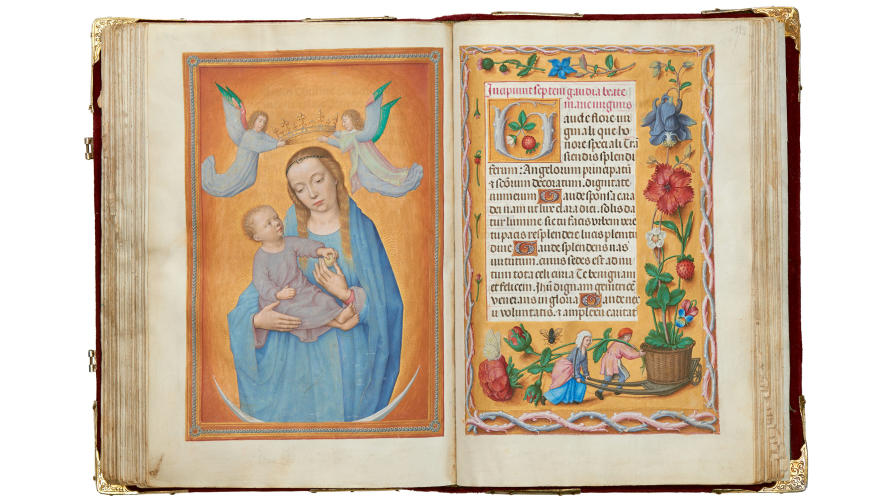 Incipiunt septem gaudia beate
marie virginis
Gaude flore uir
ginali que ho
nore speciali Trā
scendis splendi
ferum: Angelorum principatū
& sctōrum decoratum. dignitate
numerum Gaude sponsa cara
dei nam ut lux clara diei. solis da
tur lumine sic tu facis orbem vere
tu pacis resplendere lucis plenitu
dine Gaude splendens uas
uirtutum. cuius sedes est ad nu
tum tota celi curia Te benignam
et felicem. Jhū dignam genitricē
venerans in gloria Gaude nex
u voluntatis. & amplexu caritat